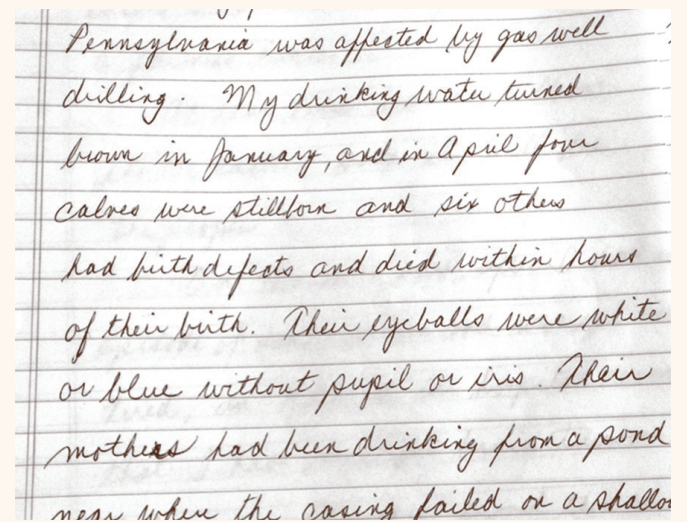 Pennsylvania was affected by gas well
drilling. My drinking water turned
brown in January, and in April four
calves were stillborn and six others
had birth defects and died within hours
of their birth. Their eyeballs were white
or blue without pupil or iris. Their
mothers had been drinking from a pond
near where the casing failed on a